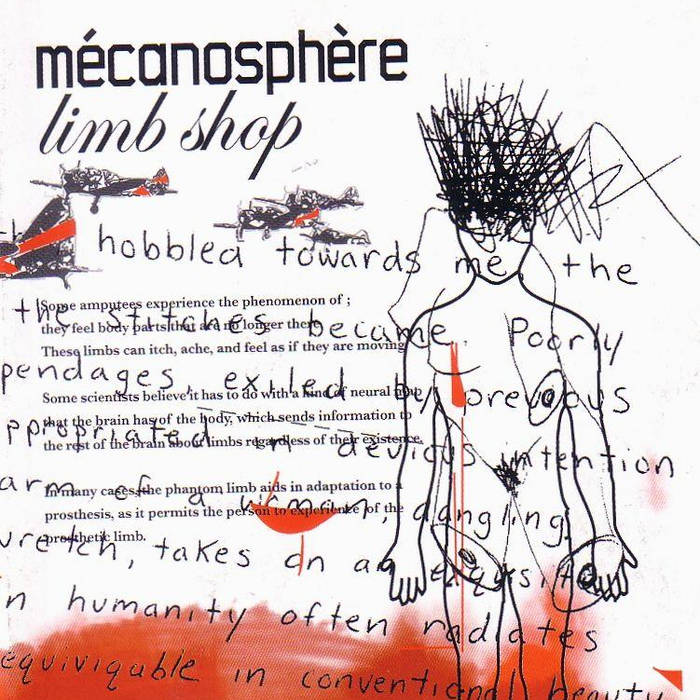 mécanosphère
limb shop
hobbled towards me, the
Some amputees experience the phenomenon of ;
the stitches became. Poorly
they feel body parts that are no longer there.
These limbs can itch, ache, and feel as if they are moving.
pendages, exiled by previous
Some scientists believe it has to do with a kind of neural map
that the brain has of the body, which sends information to
ppropriated in devious intention
the rest of the brain about limbs regardless of their existence.
arm of a woman, dangling,
In many cases, the phantom limb aids in adaptation to a
prosthesis, as it permits the person to experience of the
prosthetic limb.
wretch, takes on an exquisite
n humanity often radiates
equiviquble in conventional beauty